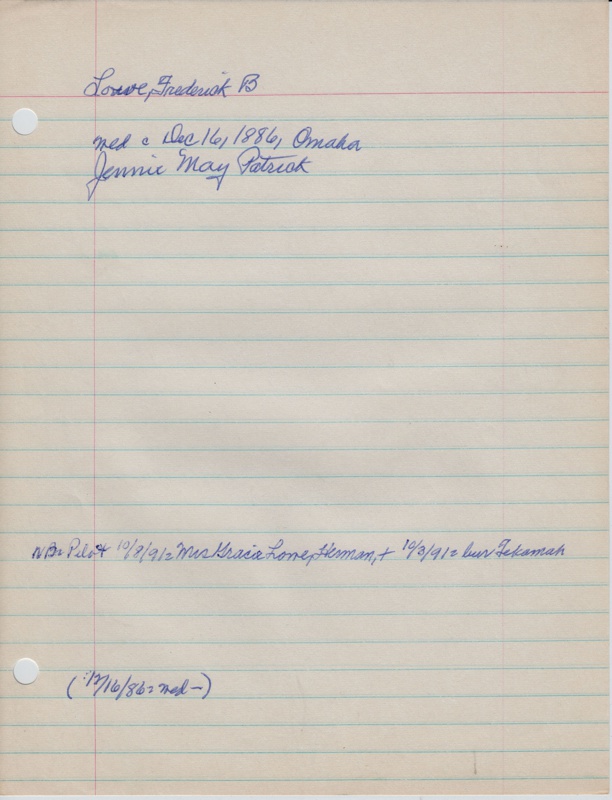 Lowe, Frederick B
med c Dec 16, 1886, Omaha
Jennie May Patrick
NB= Pilot 10/8/91= Mrs Gracia Lowe, Herman, + 10/3/91= bur Tekamah
(12/16/86= med —)